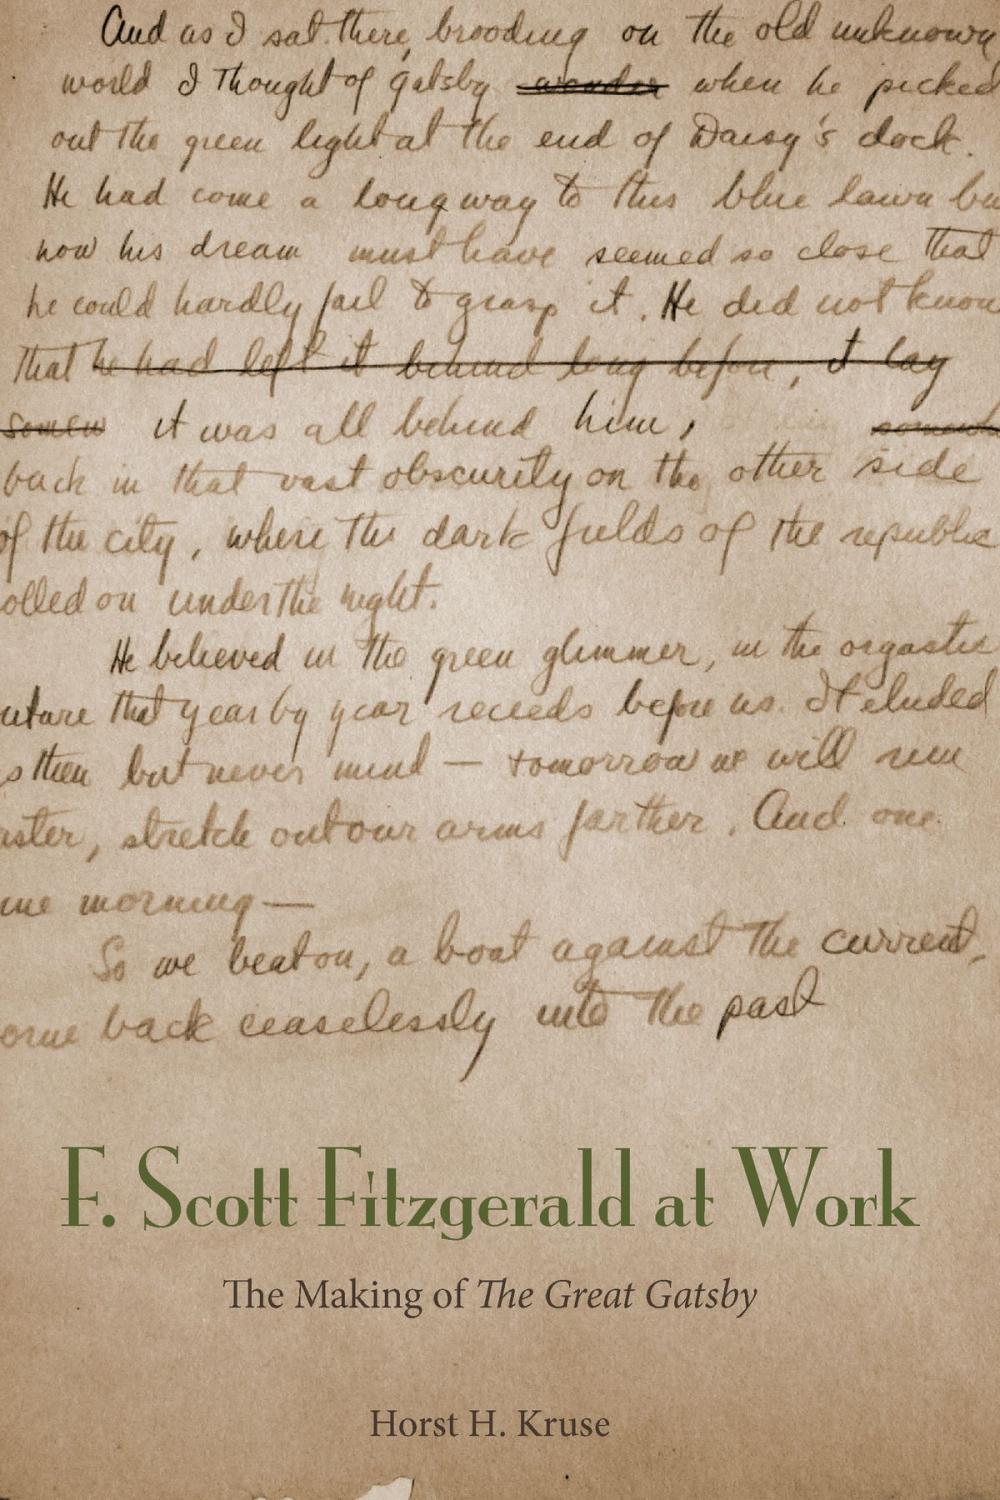 And as I sat there, brooding on the old unknown
world I thought of Gatsby wonder when he picked
out the green light at the end of Daisy's dock.
He had come a long way to this blue lawn bu
now his dream must have seemed so close that
he could hardly fail to grasp it. He did not know
that he had left it behind long before, it lay
somew it was all behind him, somewh
back in that vast obscurity on the other side
of the city, where the dark fields of the republic
olled on under the night.
He believed in the green glimmer, in the orgastic
uture that year by year recedes before us. It eluded
s then but never mind — tomorrow we will run
aster, stretch out our arms farther. And one
ine morning —
So we beat on, a boat against the current,
orne back ceaselessly into the past
F. Scott Fitzgerald at Work
The Making of The Great Gatsby
Horst H. Kruse